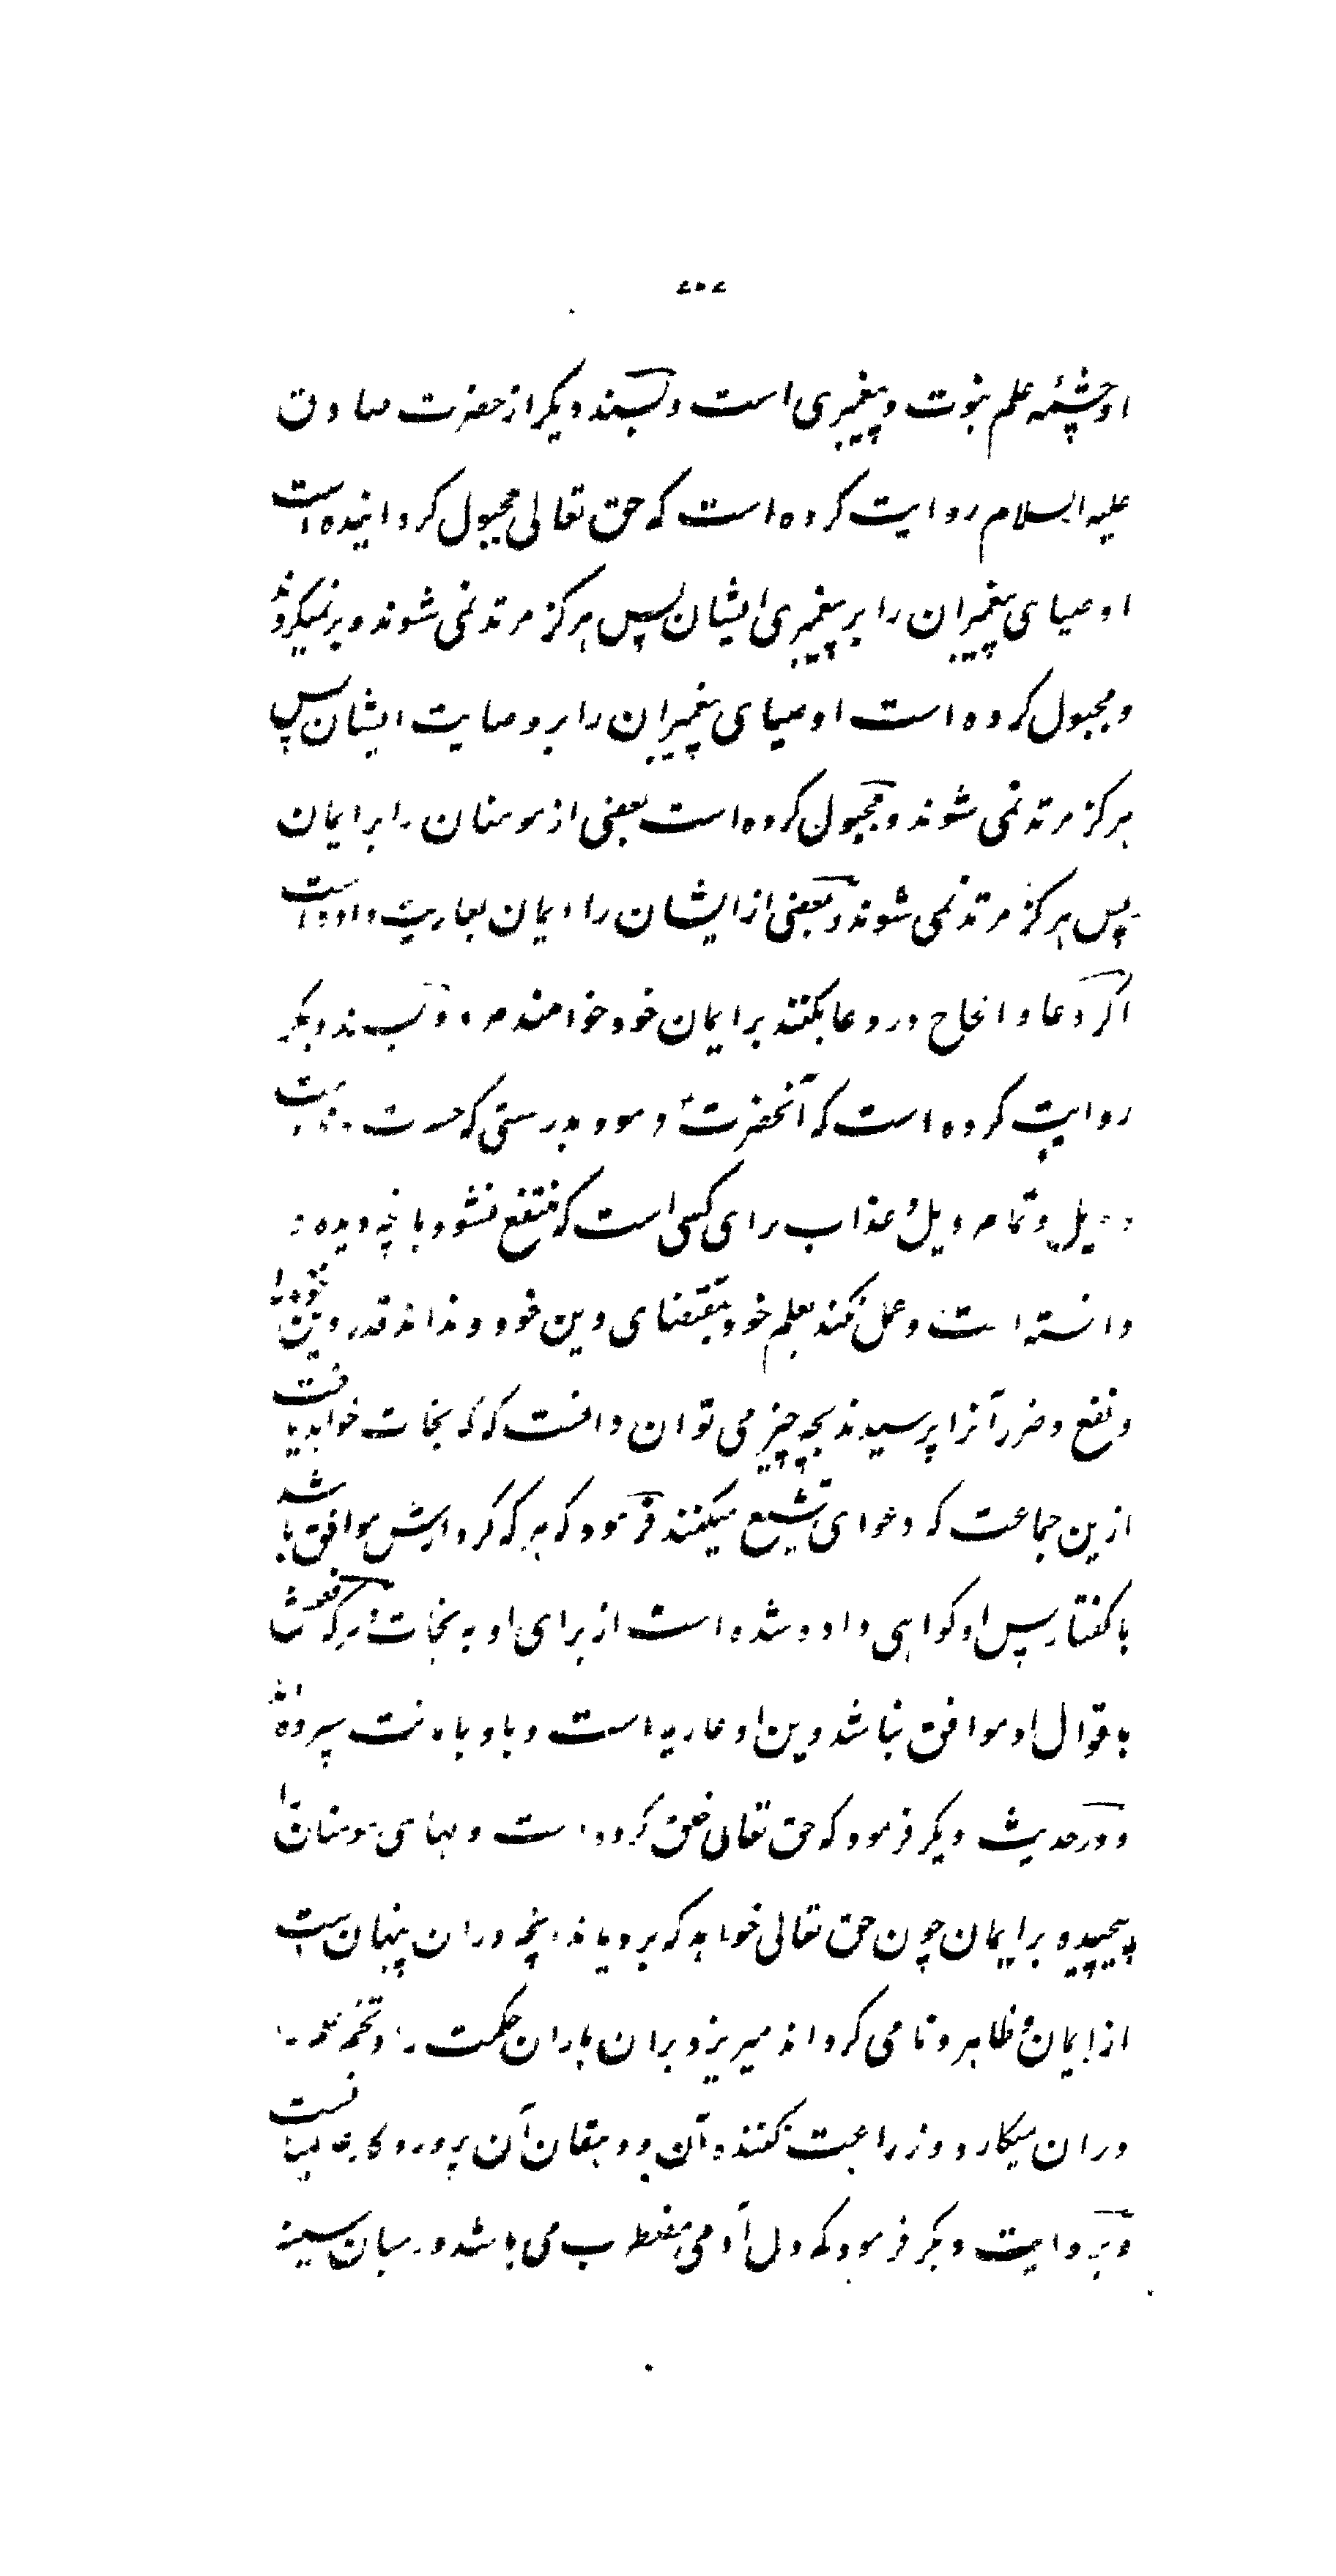 ۷۰۷
او چشمه علم نبوت و پیغمبری است و بسند دیگر از حضرت صادق
علیه السلام روایت کرده است که حق تعالی مجبول گردانیده است
اوصیای پیغمبران را بر پیغمبری ایشان پس هرگز مرتد نمی شوند و بر نمیگردند
و مجبول کرده است اوصیای پیغمبران را بر وصایت ایشان پس
هرگز مرتد نمی شوند و مجبول کرده است بعضی از مومنان را بر ایمان
پس هرگز مرتد نمی شوند و بعضی از ایشان را ایمان بعاریت داده است
اگر دعا و الحاح در دعا بکنند بر ایمان خود خواهند مرد و بسند دیگر
روایت کرده است که آنحضرت فرمود بدرستی که حسرت و ندامت
و ویل و تمام ویل و عذاب برای کسی است که منتفع نشود بآنچه دیده و
دانسته است و عمل نکند بعلم خود و بمقتضای دین خود و نداند قدر دین خود را
و نفع و ضرر آنرا پرسیدند بچه چیز می توان دانست که که نجات خواهد یافت
ازین جماعت که دعوای تشیع میکنند فرمود که هر که کردارش موافق باشد
با گفتار پس او گواهی داده شده است از برای او به نجات و هر که فعلش
باقوال او موافق نباشد دین او عاریه است و باو بامانت سپرده اند
و در حدیث دیگر فرمود که حق تعالی خلق کرده است دلهای مومنان را
پیچیده بر ایمان چون حق تعالی خواهد که برویاند آنچه در ان پنهان است
از ایمان و ظاهر و نامی گرداند میریزد بران باران حکمت را و تخم علم را
دران میکارد و زراعت کننده آن و دهقان آن پروردگار عالمیانست
و بروایت دیگر فرمود که دل آدمی مضطرب می باشد در میان سینه